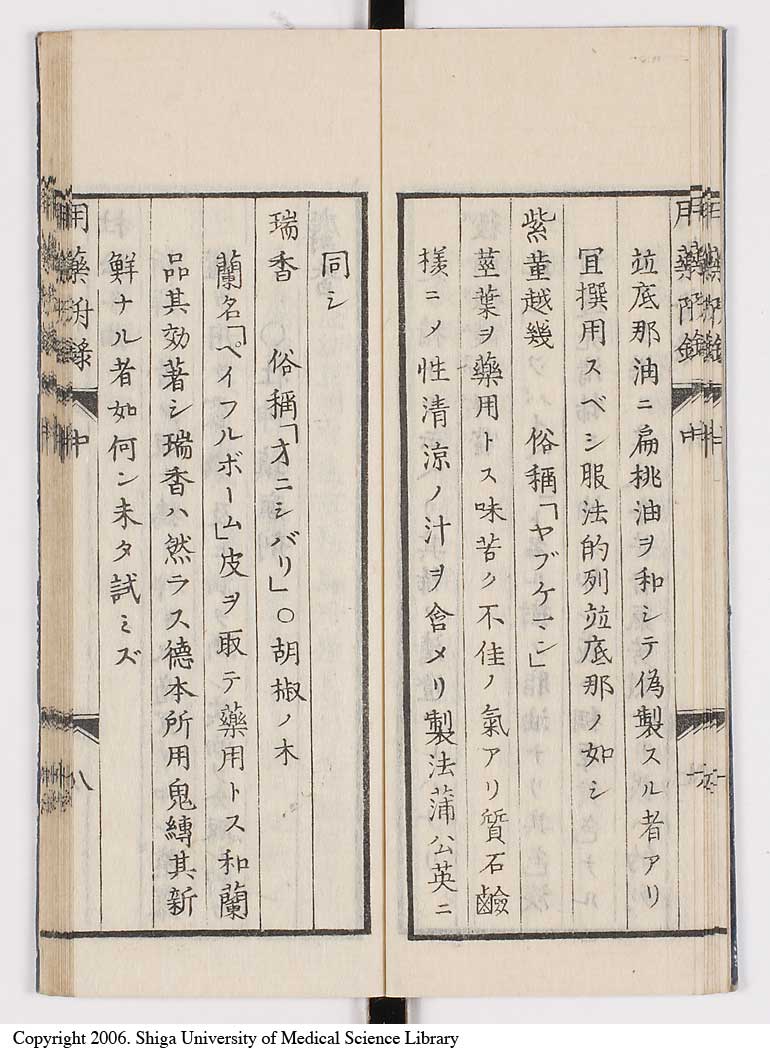 竝底那油ニ扁挑油ヲ和シテ偽製スル者アリ
冝撰用スベシ服法的列竝底那ノ如シ
紫菫越幾 俗稱「ヤブケマン」
莖葉ヲ藥用トス味苦ク不佳ノ氣アリ質石鹼
様ニメ性清涼ノ汁ヲ含メリ製法蒲公英ニ
同シ
瑞香 俗稱「オニシバリ」〇胡椒ノ木
蘭名「ペイフルボーム」皮ヲ取テ藥用トス和蘭
品其効著シ瑞香ハ然ラス德本所用鬼縛其新
鮮ナル者如何ン未タ試ミズ
用藥附錄
中
八
Copyright 2006. Shiga University of Medical Science Library